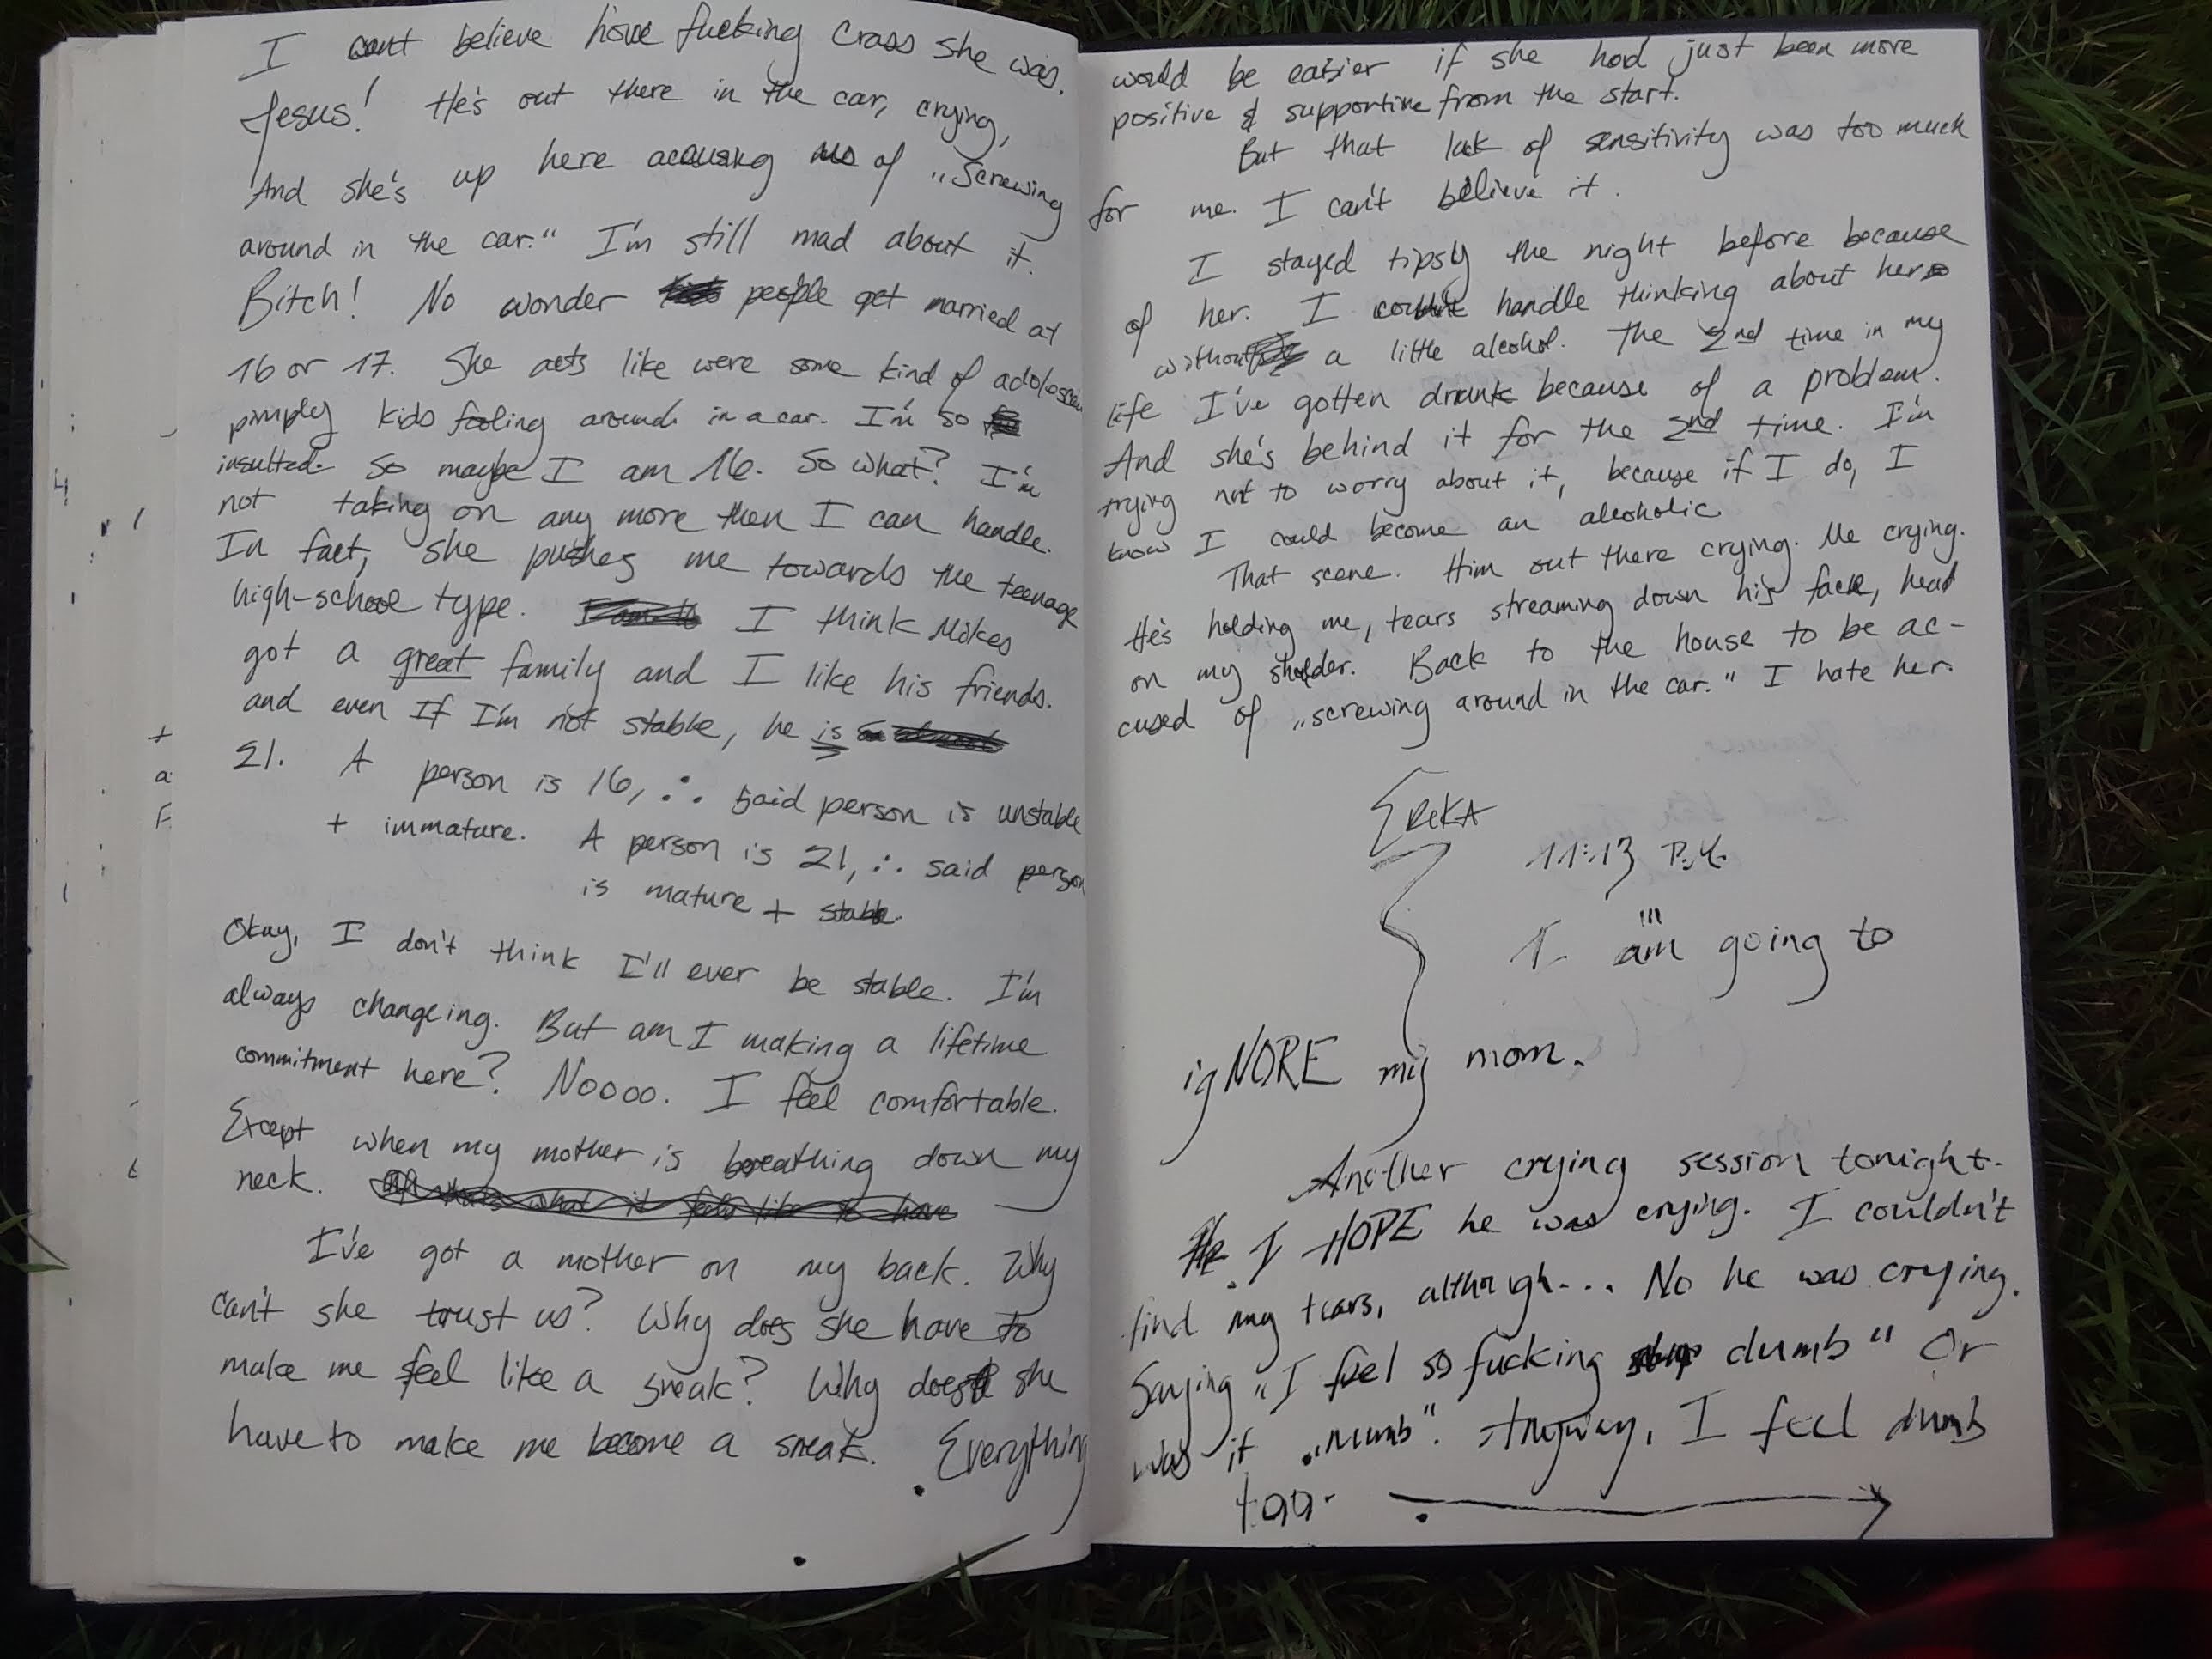 I can't believe how fucking crass she was.
Jesus! He's out there in the car, crying,
And she's up here accusing us of „Screwing
around in the car.“ I'm still mad about it.
Bitch! No wonder people get married at
16 or 17. She acts like were some kind of adolescen
pimply kids fooling around in a car. I'm so
insulted. So maybe I am 16. So what? I'm
not taking on any more then I can handle.
In fact, she pushes me towards the teenage
high-school type. I think Mikes
got a great family and I like his friends.
and even If I'm not stable, he is
21. A person is 16, ∴ said person is unstable
+ immature. A person is 21, ∴ said person
is mature + stable.
Okay, I don't think I'll ever be stable. I'm
always changeing. But am I making a lifetime
commitment here? Noooo. I feel comfortable.
Except when my mother is breathing down my
neck. Oh thats what it feels like to have
I've got a mother on my back. Why
can't she trust us? Why does she have to
make me feel like a sneak? Why does she
have to make me become a sneak. Everything
would be easier if she had just been more
positive & supportive from the start.
But that lack of sensitivity was too much
for me. I can't believe it.
I stayed tipsy the night before because
of her. I couldn't handle thinking about her
without a little alcohol. The 2nd time in my
life I've gotten drunk because of a problem.
And she's behind it for the 2nd time. I'm
trying not to worry about it, because if I do, I
know I could become an alcoholic.
That scene. Him out there crying. Me crying.
He's holding me, tears streaming down his face, head
on my sholder. Back to the house to be ac-
cused of „screwing around in the car.“ I hate her.
EReKA
11:13 P.M.
I am going to
igNORE my mom.
Another crying session tonight.
He I HOPE he was crying. I couldn't
find my tears, although... No he was crying.
Saying „I feel so fucking dumb“ Or
was it „numb“. Anyway, I feel dumb
too. →